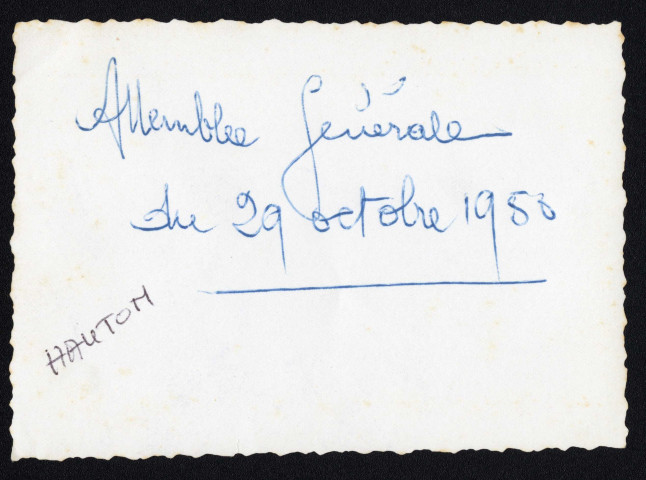 Assemblée Générale
du 29 octobre 1958
HAUTOM